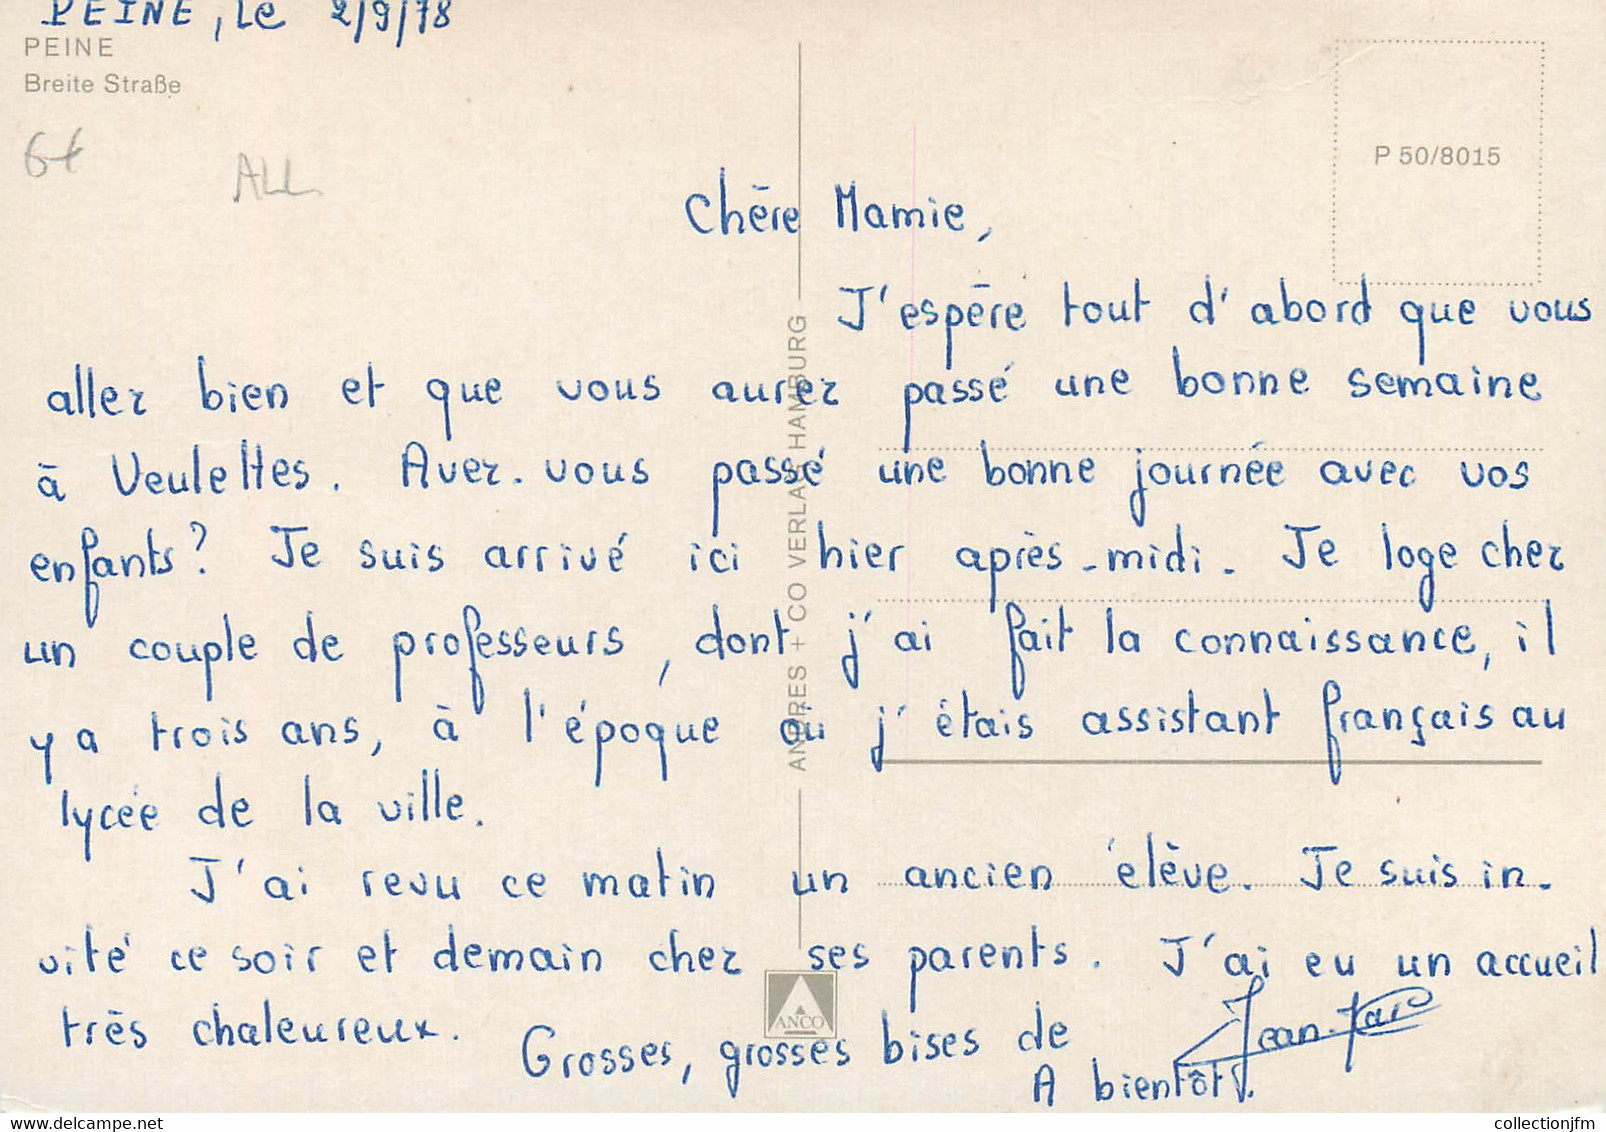 PEINE, le 2/9/78
PEINE
Breite Straße
6€
ALL
P 50/8015
Chère Mamie,
J'espère tout d'abord que vous
allez bien et que vous aurez passé une bonne semaine
à Veulettes. Avez-vous passé une bonne journée avec vos
enfants? Je suis arrivé ici hier après-midi. Je loge chez
un couple de professeurs, dont j'ai fait la connaissance, il
y a trois ans, à l'époque où j'étais assistant français au
lycée de la ville.
J'ai revu ce matin un ancien élève. Je suis in-
vité ce soir et demain chez ses parents. J'ai eu un accueil
très chaleureux.
Grosses, grosses bises de Jean-Marc
A bientôt.
ANDRES + CO VERLAG HAMBURG
ANCO
www.delcampe.net
collectionjfm